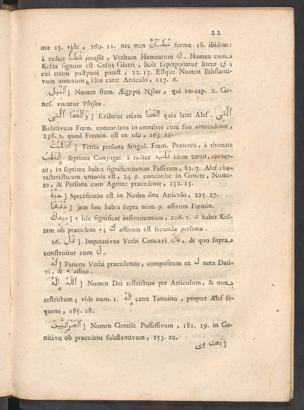 22
mæ 15. vide, 169. 11. nec non شَيْطَان formæ 18. ibidem:
à radice incessit, Verbum Hamzatum. ل Hamza cum
Kesra signum est Casus Giarri, licet superponatur literæ
cui etiam postponi potest, 22. 13. Estque Nomen substanti-
vum anexum, ideo caret Articulo, 227. 6.
اَلنِّيل ] Nomen flum. Ægypti Nilus, qui in cap. 2. Ge-
nes. vocatur Phison.
اَلْعَصَا اَلَّتِي ] scribitur etiam quia latet Alef:
Relativum Fœm. concordans in omnibus cum suo antecedente,
238. 2. quod Fœmin. est ex usu, 163. 13.
اِنْقَلَبَتْ ] Tertia persona Singul. Fœm. Præterea, à themate
اِنْقَلَبَ septima Conjugat. à radice قَلَبَ idem vertit, conver-
tit; in septima habet significationem Passivum, 82. 7. Alef cha-
racteristicum unionis est, 24. 9. concordat in Genere, Nume-
ro, & Persona cum Agente præcedente, 232. 15.
حَيَّة ] Specificatio est in Nasbo sine Articulo, 225. 27.
خُذْهَا ] jam hoc habes supra num. 9. affixum Fœmin.
بِيَدِكَ ] hîc significat instrumentum, 206. 2. habet Kes-
ram ob præcedens ك affixum est secundæ personæ.
16. قُلْ ] Imperativus Verbi Concavi قَالَ, de quo supra
construitur cum لِ.
لَهُ ] Pationis Verbi præcedentis, compositum ex لِ nota Dati-
vi, & affixo.
اَللّٰه اِلٰه ] Nomen Dei restrictum per Articulum, & non
restrictum; vide num. 1. اِلٰه caret Tanuino, propter Alef se-
quens, 185. 18.
اَلْعِبْرَانِيِّينَ ] Nomen Gentile Possessivum, 181. 19. in Ge-
nitivo ob præcedens substantivum, 253. 20.